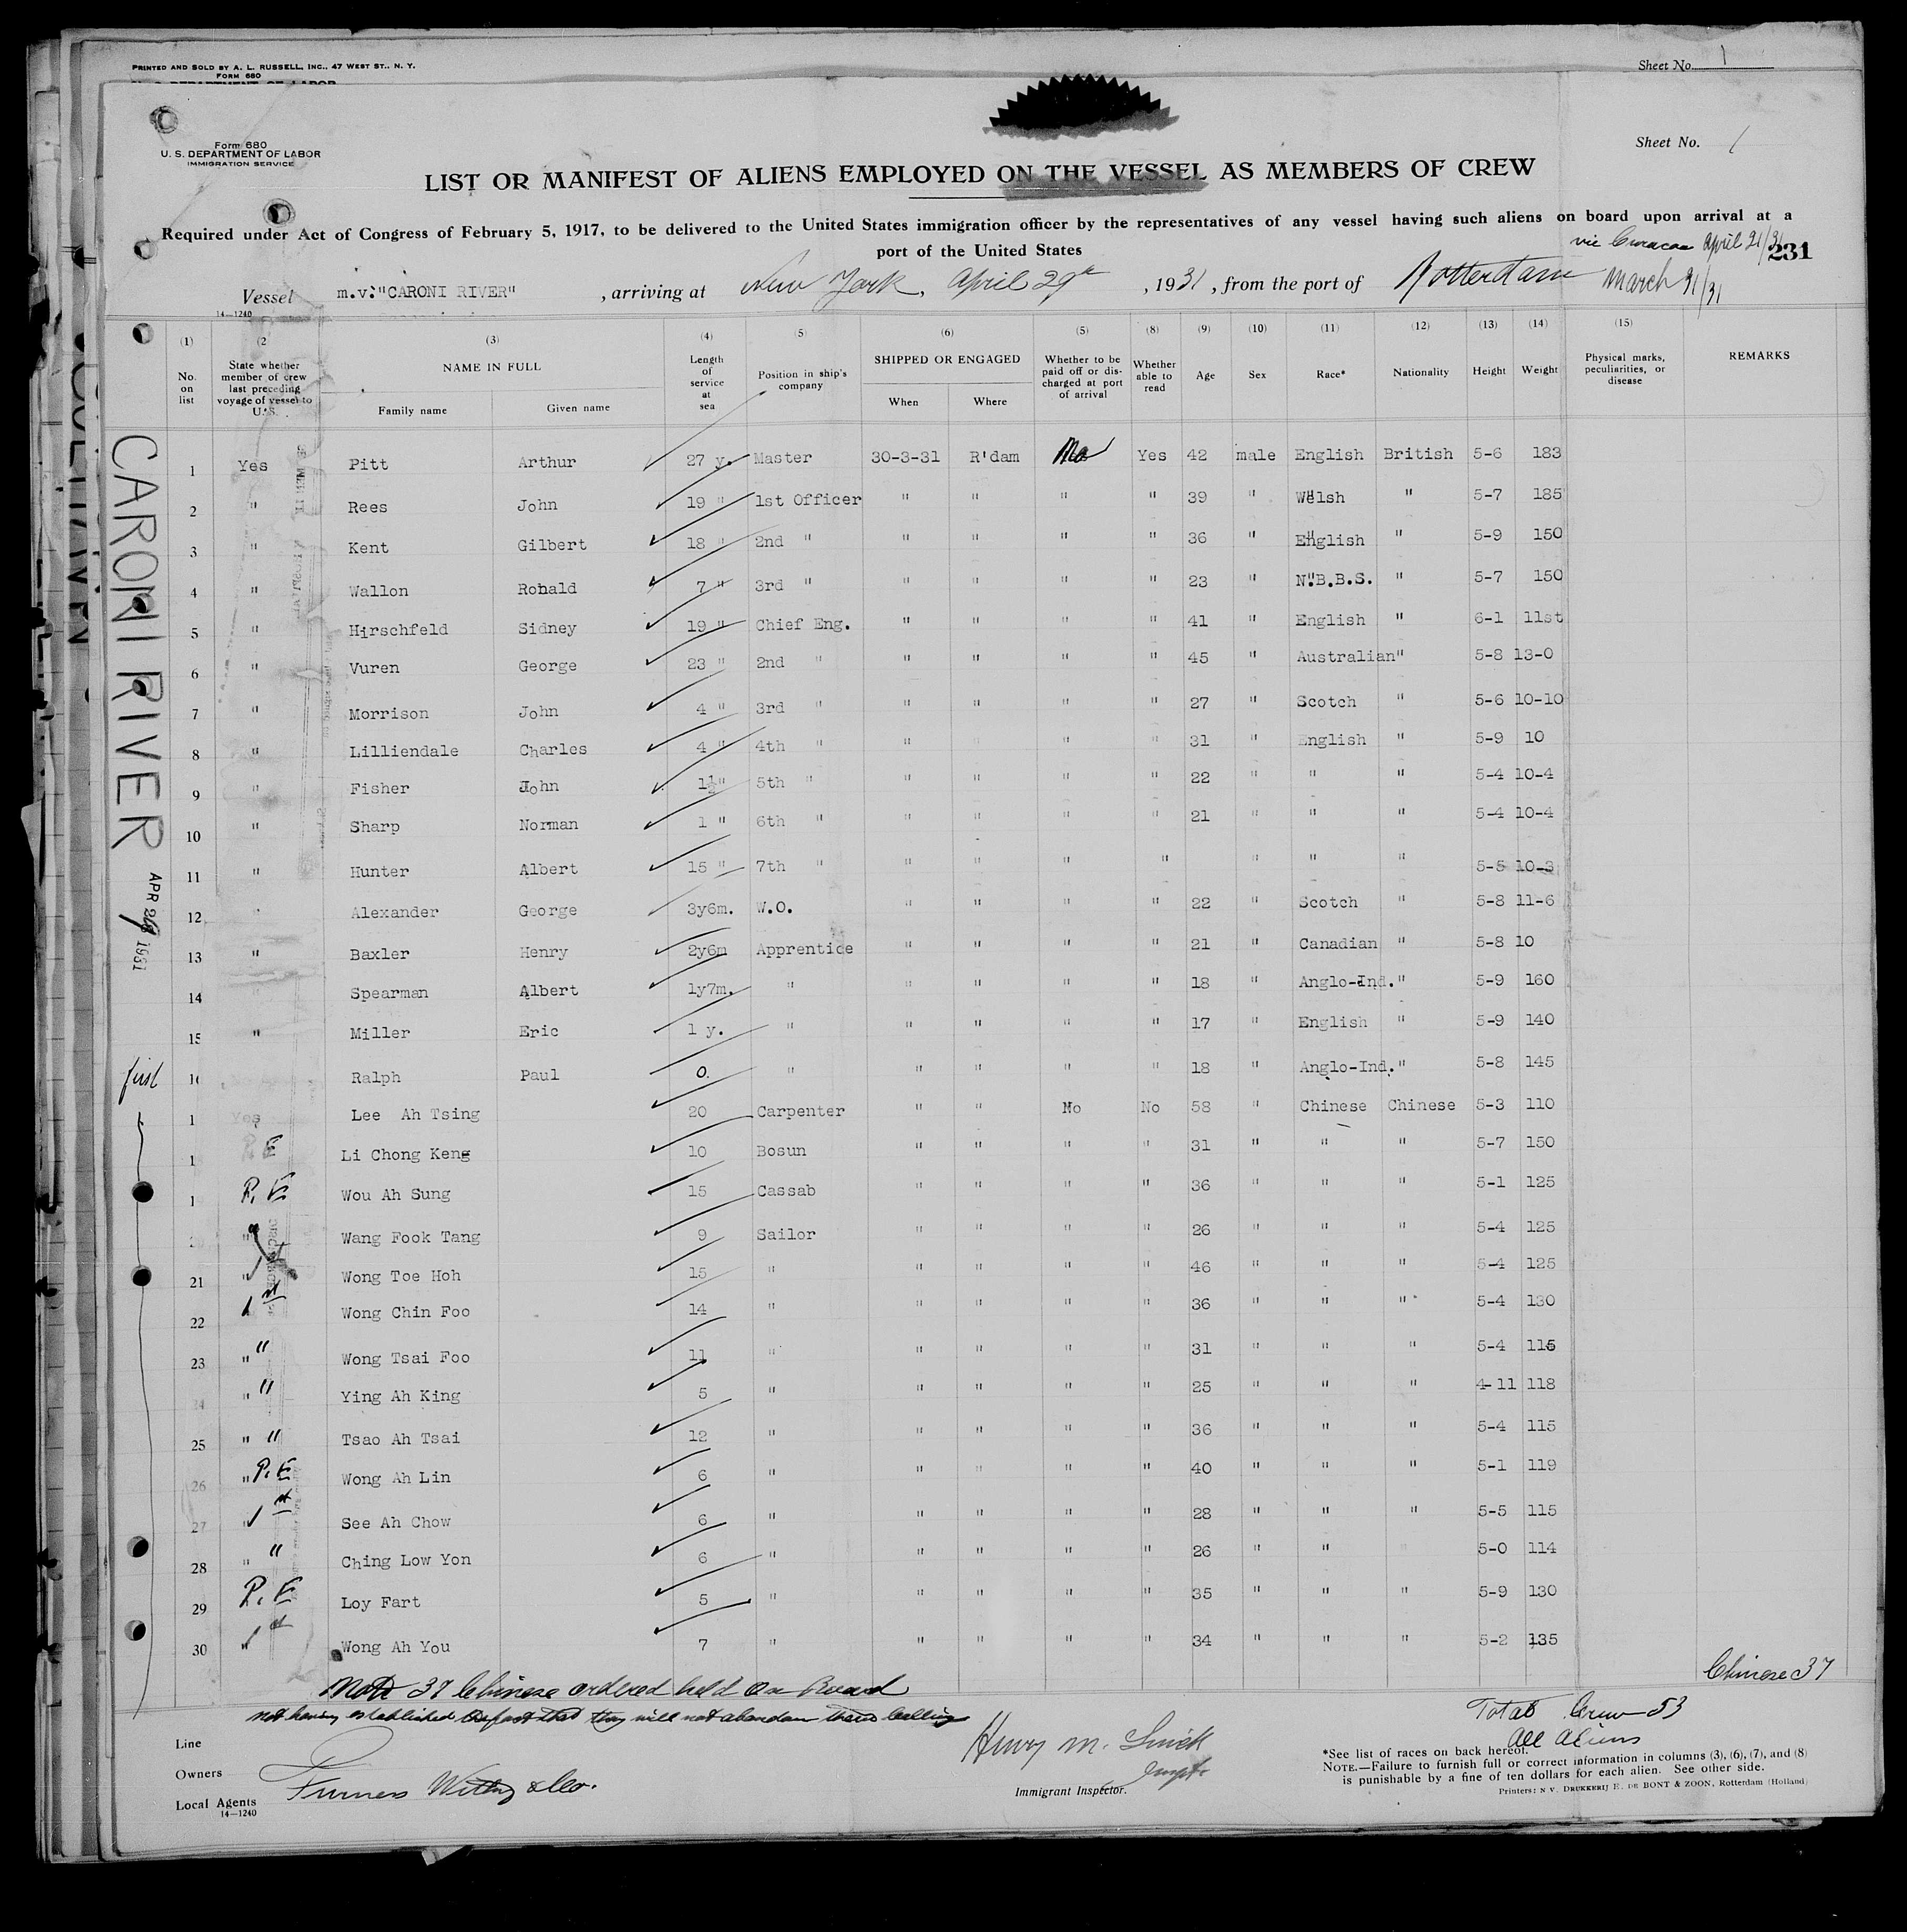 PRINTED AND SOLD BY A. L. RUSSELL, INC., 47 WEST ST., N. Y.
FORM 680
Sheet No. 1
Form 680
U. S. DEPARTMENT OF LABOR
IMMIGRATION SERVICE
Sheet No. 1
LIST OR MANIFEST OF ALIENS EMPLOYED ON THE VESSEL AS MEMBERS OF CREW
Required under Act of Congress of February 5, 1917, to be delivered to the United States immigration officer by the representatives of any vessel having such aliens on board upon arrival at a
port of the United States
via Curacao April 21/31
231
Vessel m.v."CARONI RIVER" , arriving at New York, April 29th , 1931 , from the port of Rotterdam March 31/31
14—1240
(1) (2 (3) (4) (5) (6) (5) (8) (9) (10) (11) (12) (13) (14) (15)
No. on list
State whether member of crew last preceding voyage of vessel to U.S.
NAME IN FULL
Family name Given name
Length of service at sea
Position in ship's company
SHIPPED OR ENGAGED
When Where
Whether to be paid off or discharged at port of arrival
Whether able to read
Age Sex Race* Nationality Height Weight
Physical marks, peculiarities, or disease
REMARKS
CARONI RIVER
APR 29 1931
1 Yes Pitt Arthur 27 y. Master 30-3-31 R'dam No Yes 42 male English British 5-6 183
2 " Rees John 19 " 1st Officer " " " " 39 " Welsh " 5-7 185
3 " Kent Gilbert 18 " 2nd " " " " " 36 " English " 5-9 150
4 " Wallon Ronald 7 " 3rd " " " " " 23 " N.B.B.S. " 5-7 150
5 " Hirschfeld Sidney 19 " Chief Eng. " " " " 41 " English " 6-1 11st
6 " Vuren George 23 " 2nd " " " " " 45 " Australian " 5-8 13-0
7 " Morrison John 4 " 3rd " " " " " 27 " Scotch " 5-6 10-10
8 " Lilliendale Charles 4 " 4th " " " " " 31 " English " 5-9 10
9 " Fisher John 1½" 5th " " " " " 22 " " " 5-4 10-4
10 " Sharp Norman 1 " 6th " " " " " 21 " " " 5-4 10-4
11 " Hunter Albert 15 " 7th " " " " " " " " 5-5 10-3
12 " Alexander George 3y6m. W.O. " " " " 22 " Scotch " 5-8 11-6
13 " Baxler Henry 2y6m Apprentice " " " " 21 " Canadian " 5-8 10
14 " Spearman Albert 1y7m. " " " " " 18 " Anglo-Ind. " 5-9 160
15 " Miller Eric 1 y. " " " " " 17 " English " 5-9 140
first 1 Ralph Paul 0. " " " " " 18 " Anglo-Ind. " 5-8 145
1 Yes Lee Ah Tsing 20 Carpenter " " No No 58 " Chinese Chinese 5-3 110
1 Li Chong Keng 10 Bosun " " " " 31 " " " 5-7 150
1 P. E Wou Ah Sung 15 Cassab " " " " 36 " " " 5-1 125
" Wang Fook Tang 9 Sailor " " " " 26 " " " 5-4 125
21 Wong Toe Hoh 15 " " " " " 46 " " " 5-4 125
22 1st Wong Chin Foo 14 " " " " " 36 " " " 5-4 130
23 " " Wong Tsai Foo 11 " " " " " 31 " " " 5-4 115
24 " " Ying Ah King 5 " " " " " 25 " " " 4-11 118
25 " " Tsao Ah Tsai 12 " " " " " 36 " " " 5-4 115
26 " P. E Wong Ah Lin 6 " " " " " 40 " " " 5-1 119
27 1st See Ah Chow 6 " " " " " 28 " " " 5-5 115
28 " " Ching Low Yon 6 " " " " " 26 " " 5-0 114
29 P. E Loy Fart 5 " " " " " 35 " " " 5-9 130
30 1st Wong Ah You 7 " " " " " 34 " " " 5-2 135
Chinese 37
Note 37 Chinese ordered held on Board
not having established the fact that they will not abandon their calling
Total Crew 53
All Aliens
Line
Owners
Local Agents Furness Withy & Co.
14—1240
Henry M.
Inspt.
Immigrant Inspector.
*See list of races on back hereof.
NOTE.—Failure to furnish full or correct information in columns (3), (6), (7), and (8)
is punishable by a fine of ten dollars for each alien. See other side.
Printers: N V. DRUKKERIJ H. DE BONT & ZOON, Rotterdam (Holland)